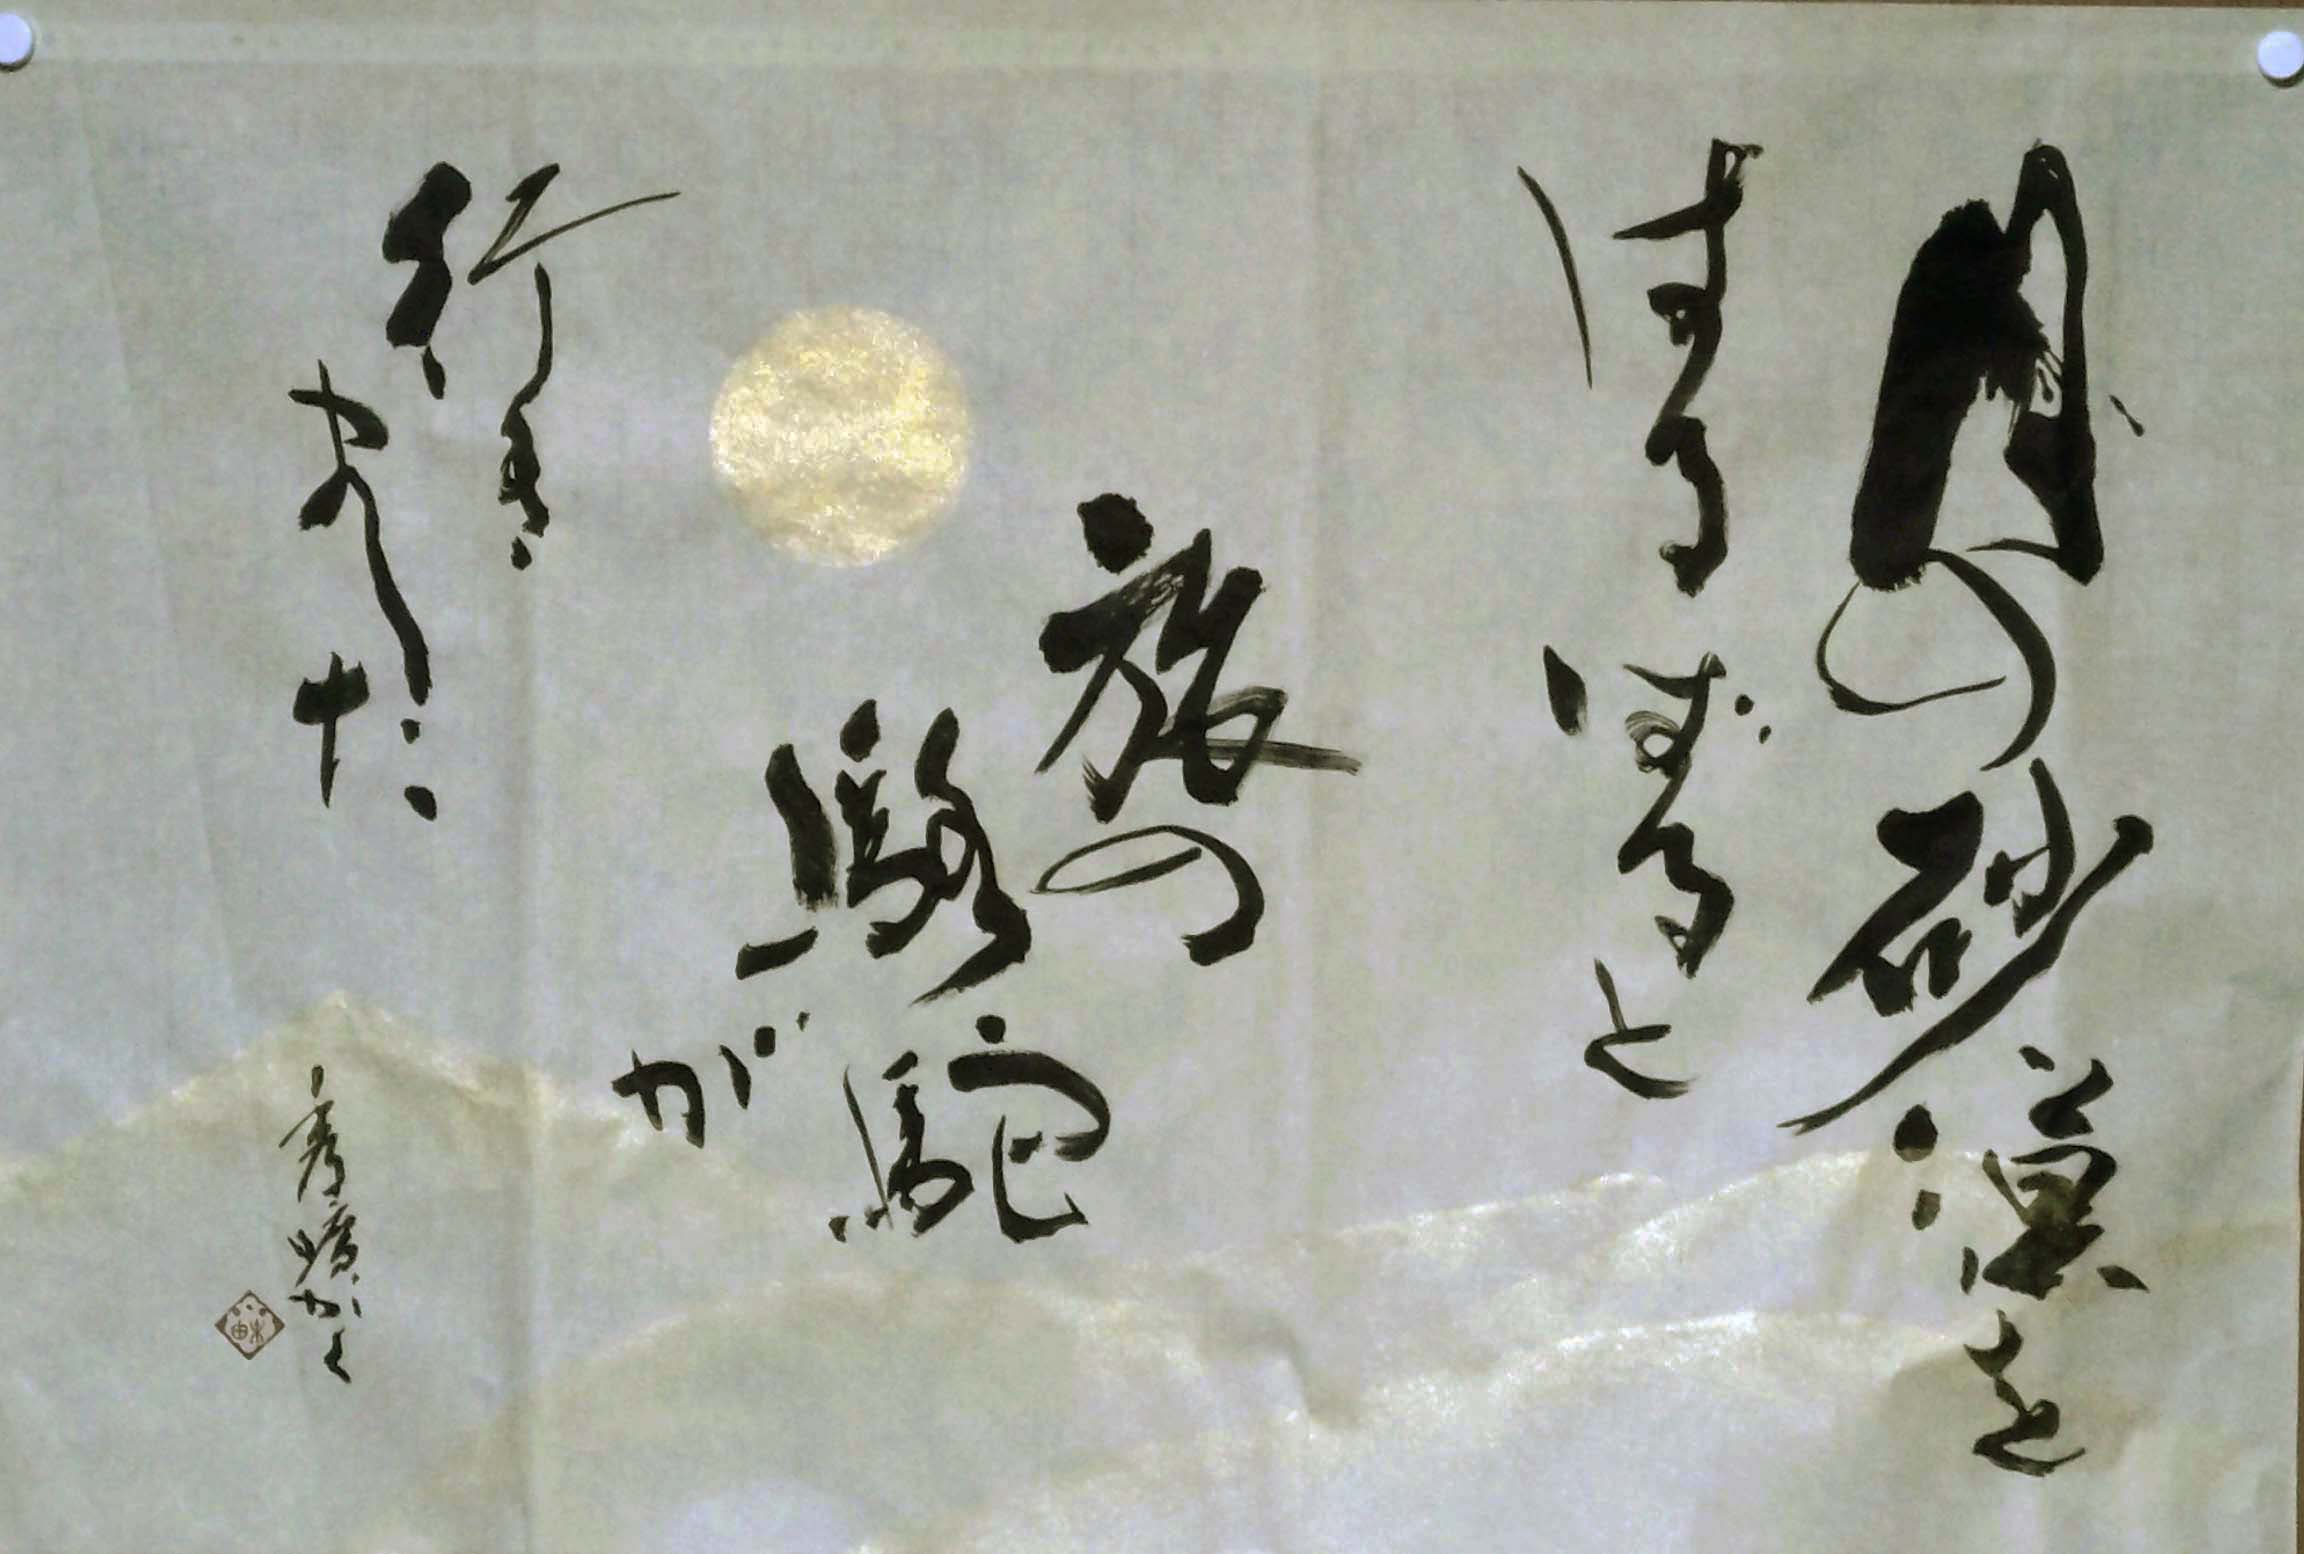 月の砂漠を
はるばると
旅の
駱駝が
行き
ました